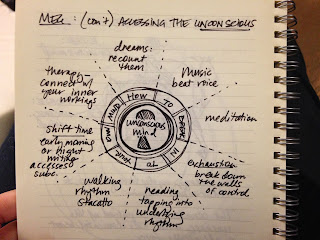 MEG: (con't) ACCESSING THE UNCONSCIOUS
dreams:
recount
them
Music
beat voice
meditation
exhaustion
break down
the walls
of control
reading
tapping into
underlying
rhythm
walking
rhythm
staccato
shift time
early morning
or night
writing
accesses
subc.
therapy
connect w/
your inner
workings
HOW TO
IN TO
YOUR OWN MIND
unconscious
mind